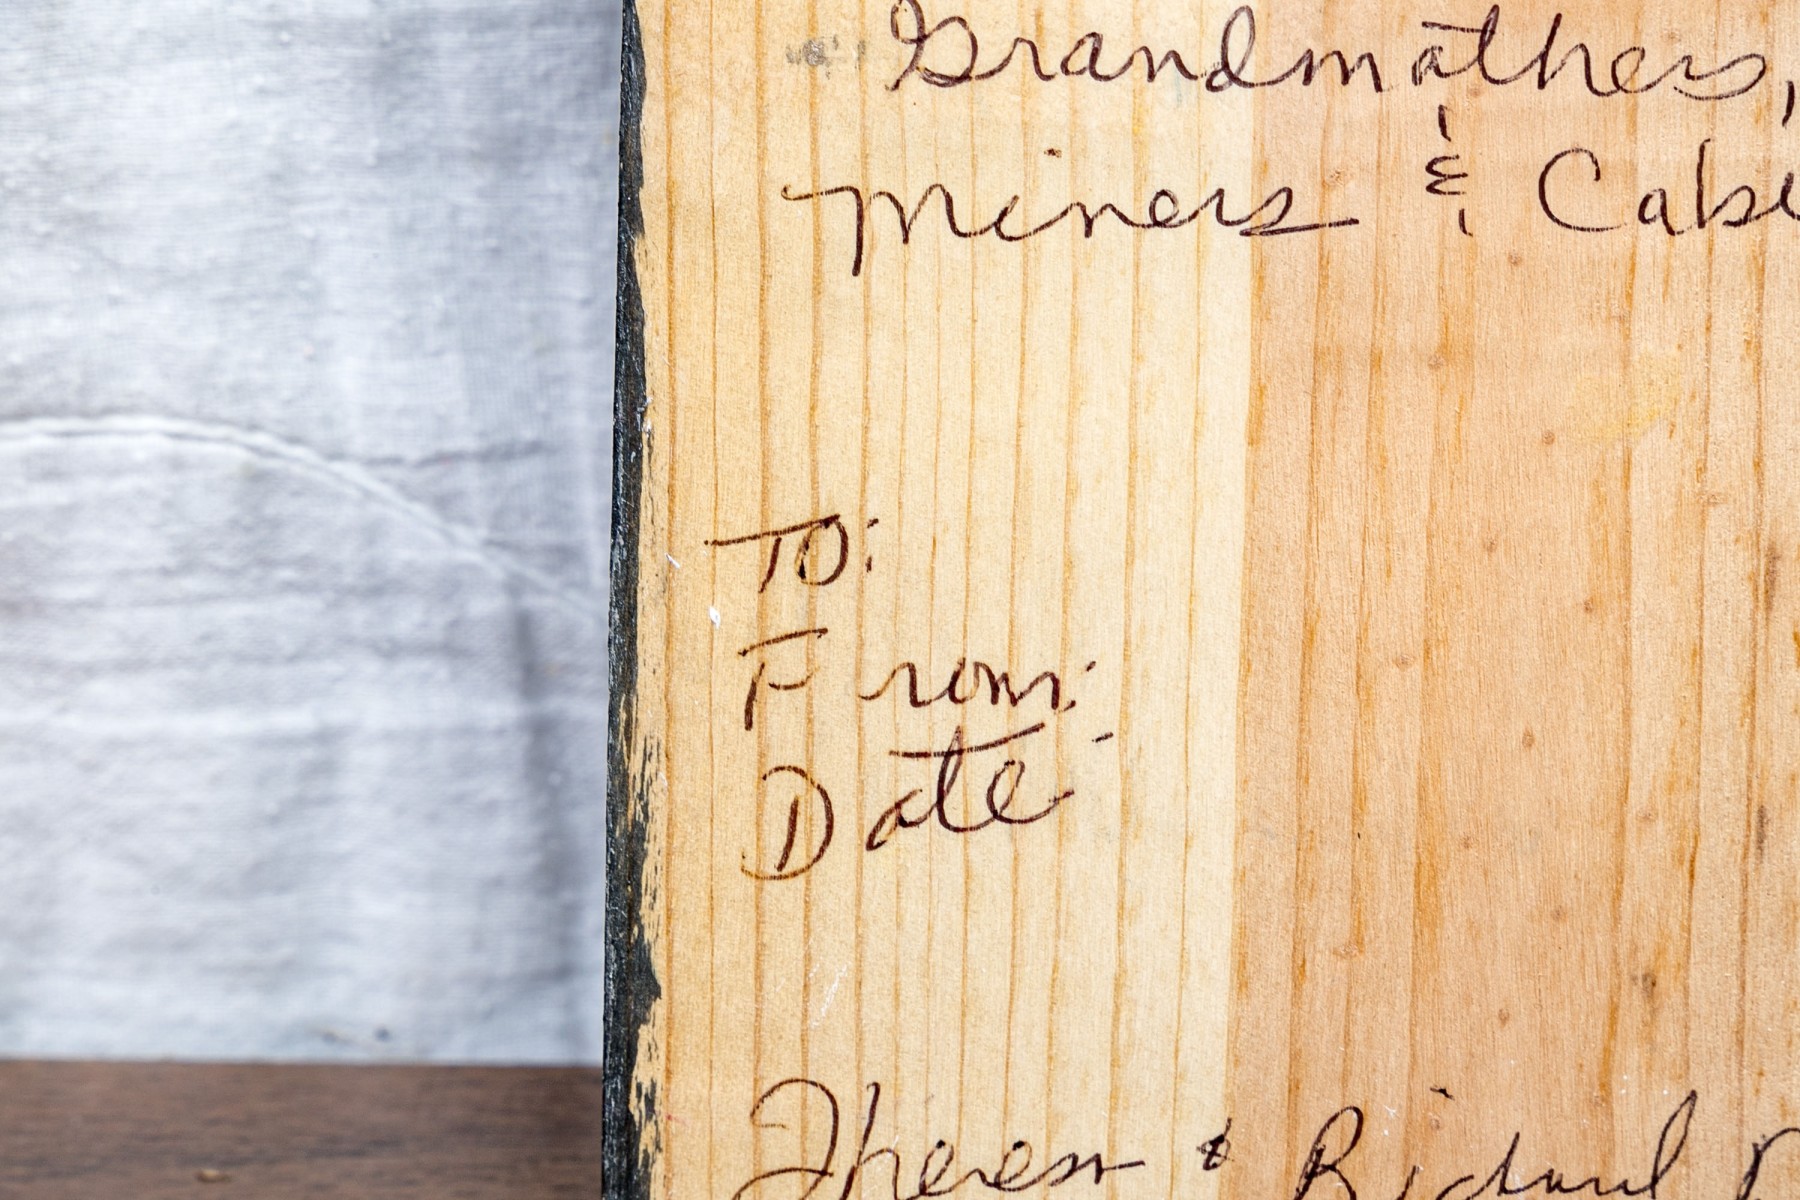 Grandmothers,
Miners & Cabi
To:
From:
Date:
Theresa & Richard